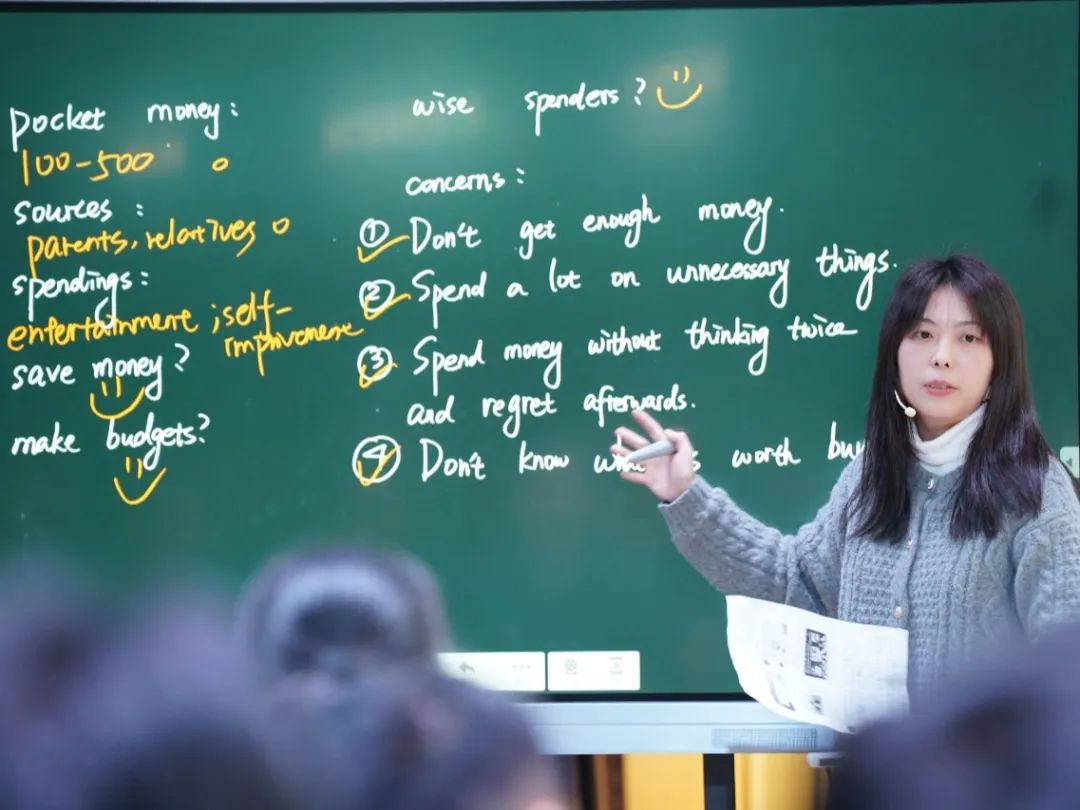 pocket money:
100-500
sources:
parents, relatives
spendings:
entertainment; self-
improvement
save money?
make budgets?
wise spenders?
concerns:
① Don't get enough money.
② Spend a lot on unnecessary things.
③ Spend money without thinking twice
and regret afterwards.
④ Don't know worth